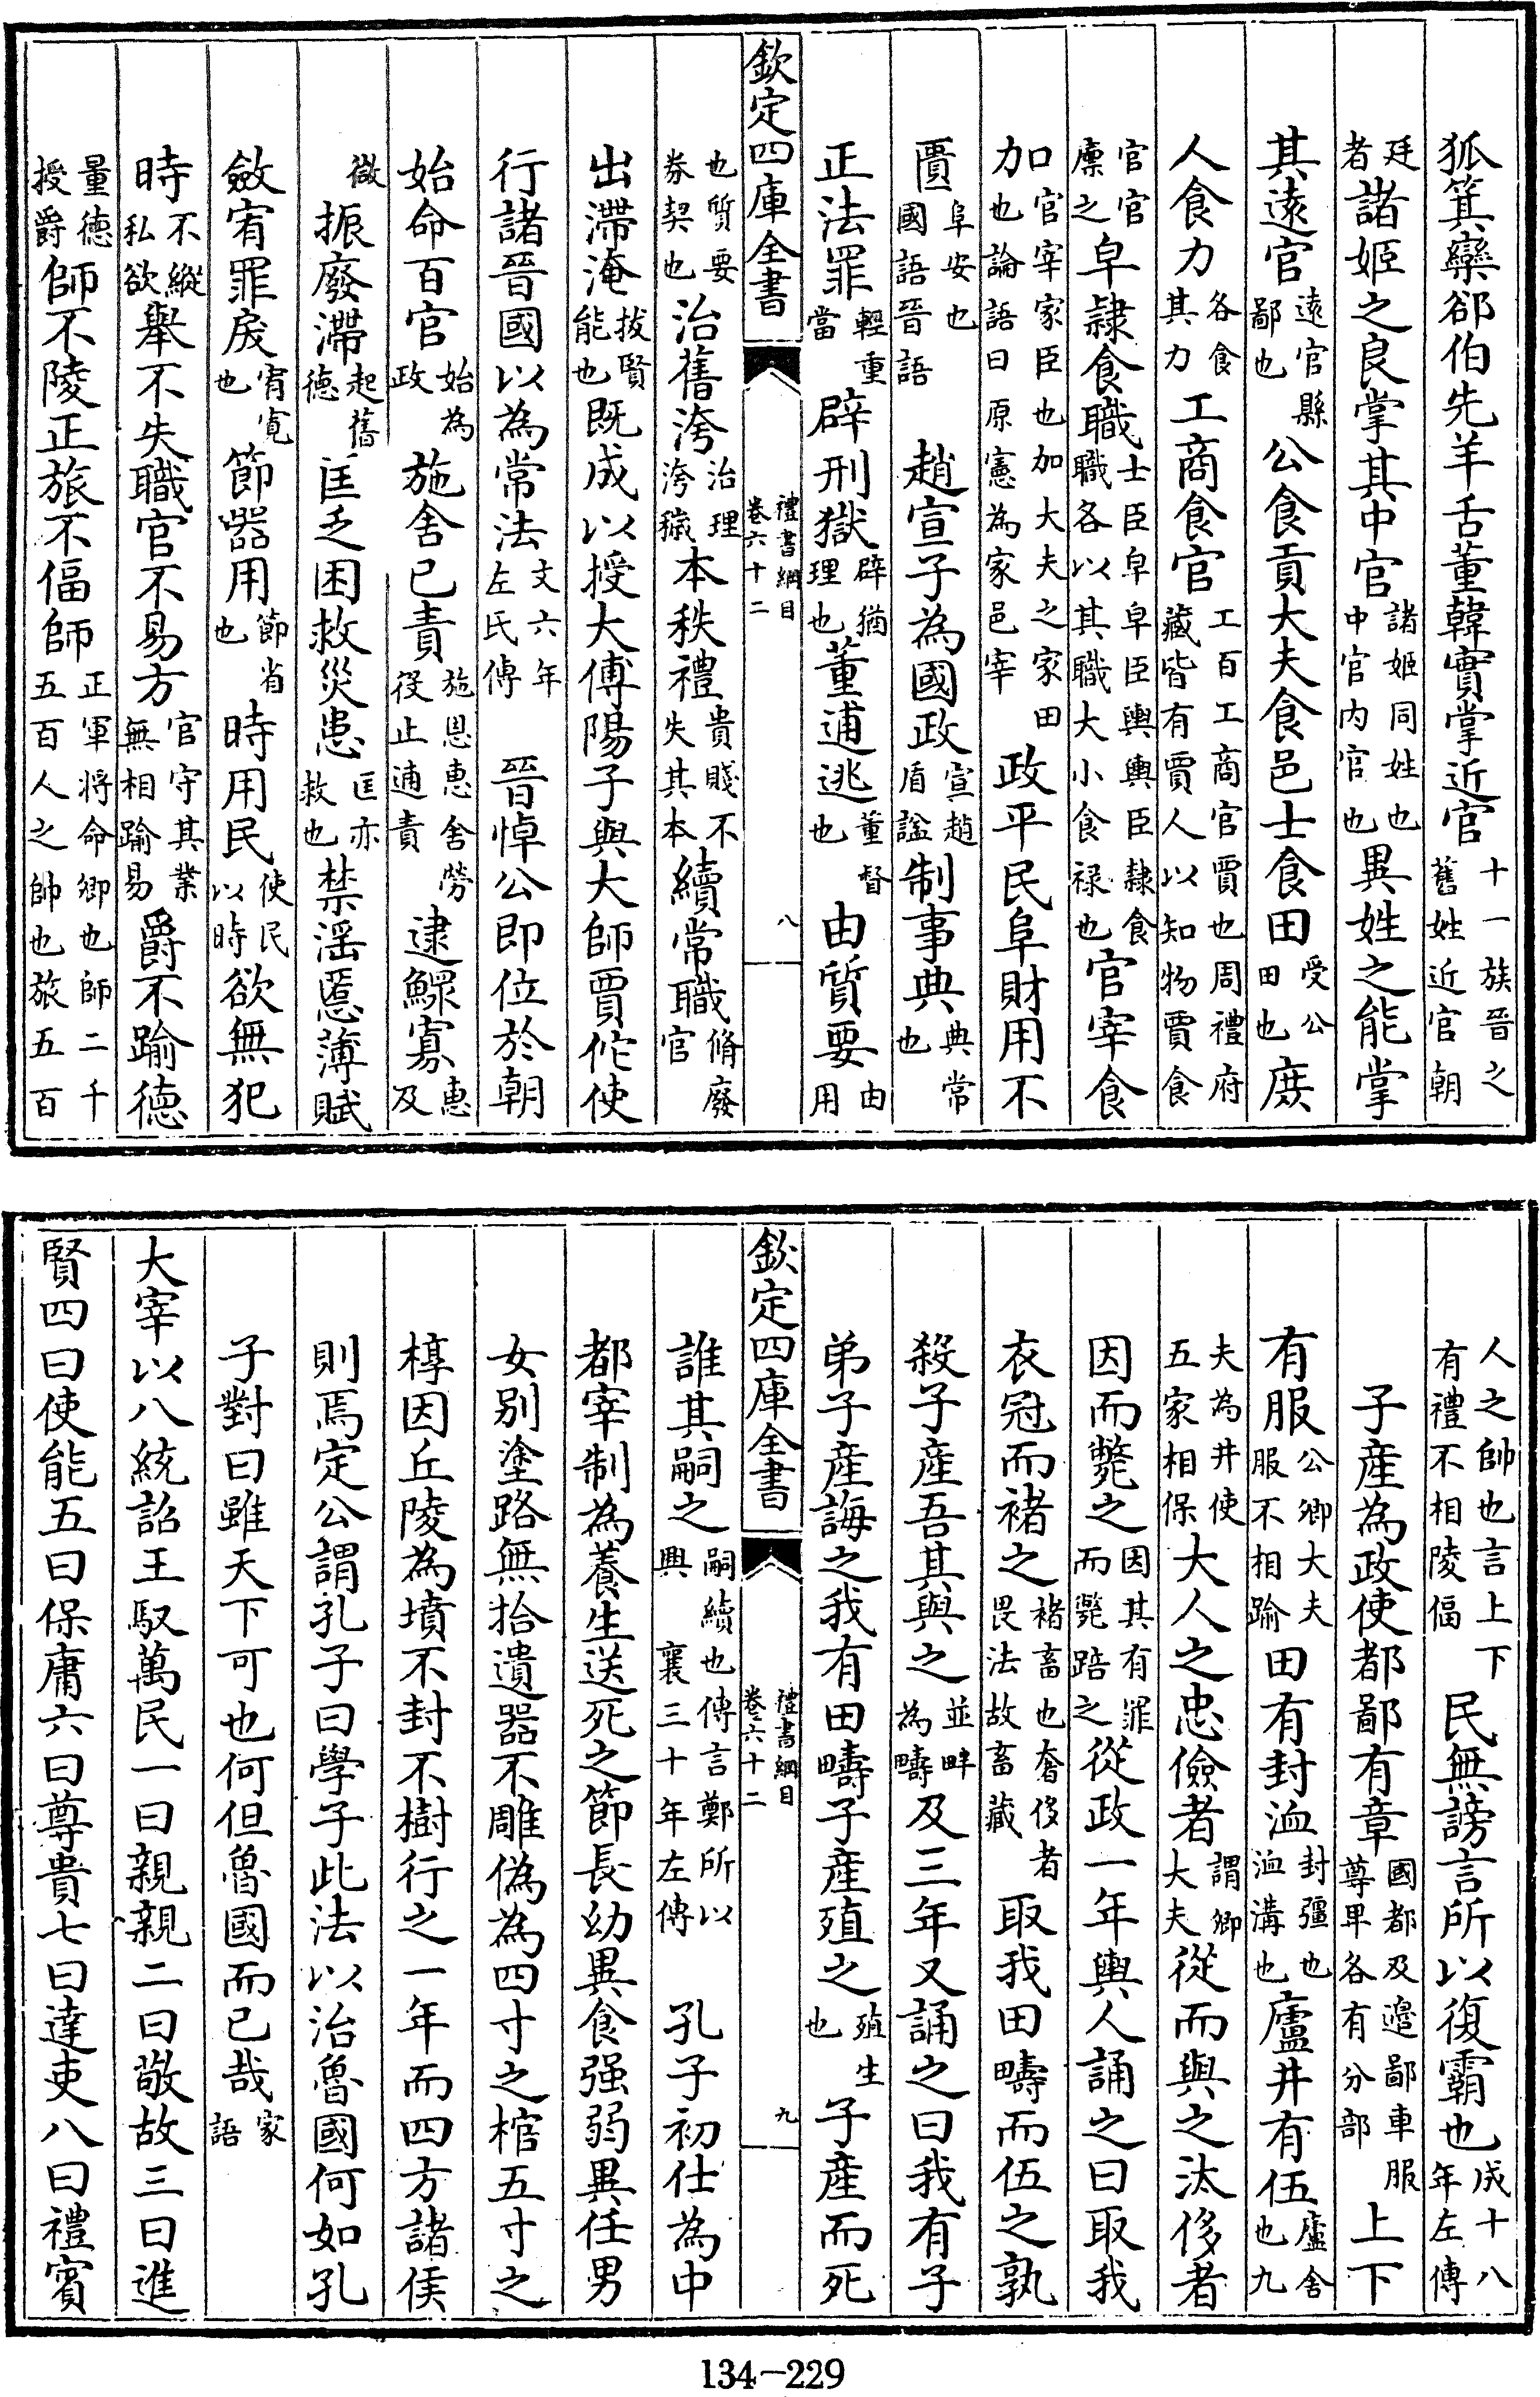 狐箕欒郤伯先羊舌董韓實掌近官十一族晉之舊姓近官朝
廷者諸姬之良掌其中官諸姬同姓也中官内官也異姓之能掌
其遠官遠官縣鄙也公食貢大夫食邑士食田受公田也庶
人食力各食其力工商食官工百工商官賈也周禮府藏皆有賈人以知物賈食
官官官廪之皁隷食職士臣皁皁臣輿輿臣隷食職各以其職大小食禄也官宰食
加官宰家臣也加大夫之家田也論語曰原憲為家邑宰政平民阜財用不
匱阜安也國語晉語趙宣子為國政宣趙盾諡制事典典常也
正法罪輕重當辟刑獄辟猶理也董逋逃董督也由質要由用
欽定四庫全書
禮書綱目
卷六十二
八
也質要券契也治舊洿治理洿穢本秩禮貴賤不失其本續常職脩廢官
出滯淹拔賢能也既成以授大傅陽子與大師賈佗使
行諸晉國以為常法文六年左氏傳晉悼公即位於朝
始命百官始為政施舍已責施恩惠舍勞役止逋責逮鰥寡惠及
微振廢滯起舊德匡乏困救災患匡亦救也禁淫慝薄賦
斂宥罪戾宥寛也節器用節省也時用民使民以時欲無犯
時不縱私欲舉不失職官不易方官守其業無相踰易爵不踰德
量德授爵師不陵正旅不偪師正軍將命卿也師二千五百人之帥也旅五百
人之帥也言上下有禮不相陵偪民無謗言所以復霸也成十八年左傳
子產為政使都鄙有章國都及邊鄙車服尊卑各有分部上下
有服公卿大夫服不相踰田有封洫封疆也洫溝也廬井有伍廬舍也九
夫為井使五家相保大人之忠儉者謂卿大夫從而與之汰侈者
因而斃之因其有罪而斃踣之從政一年輿人誦之曰取我
衣冠而褚之褚畜也奢侈者畏法故畜藏取我田疇而伍之孰
殺子產吾其與之並畔為疇及三年又誦之曰我有子
弟子產誨之我有田疇子產殖之殖生也子產而死
欽定四庫全書
禮書綱目
卷六十二
九
誰其嗣之嗣續也傳言鄭所以興襄三十年左傳孔子初仕為中
都宰制為養生送死之節長幼異食强弱異任男
女別塗路無拾遺器不雕偽為四寸之棺五寸之
椁因丘陵為墳不封不樹行之一年而四方諸侯
則焉定公謂孔子曰學子此法以治魯國何如孔
子對曰雖天下可也何但魯國而已哉家語
大宰以八統詔王馭萬民一曰親親二曰敬故三曰進
賢四曰使能五曰保庸六曰尊貴七曰達吏八曰禮賓
134-229